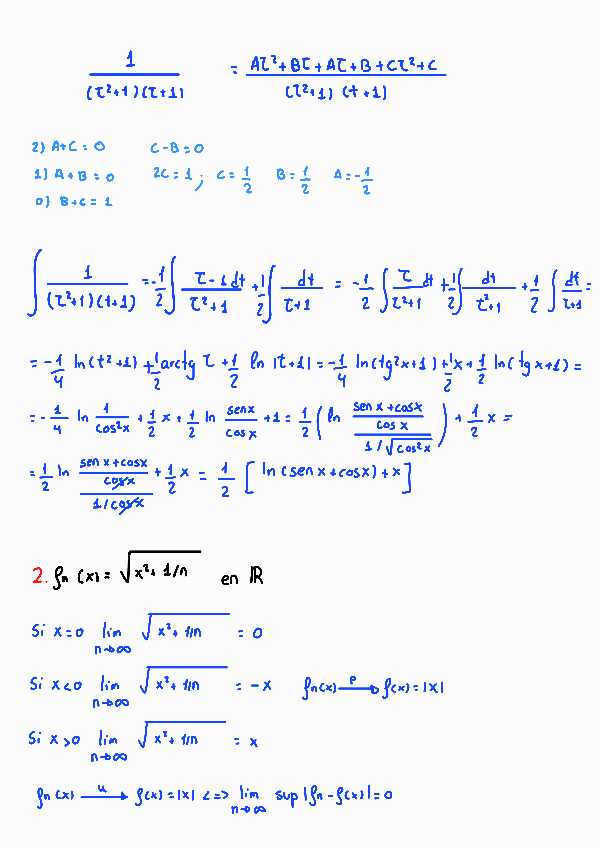 1/((τ²+1)(τ+1)) = (Aτ²+Bτ+Aτ+B+Cτ²+C)/((τ²+1)(t+1))
2) A+C=0 C-B=0
1) A+B=0 2C=1; C=1/2 B=1/2 A=-1/2
0) B+C=1
∫ 1/((τ²+1)(t+1)) = -1/2 ∫ (τ-1 dt)/(τ²+1) + 1/2 ∫ dt/(τ+1) = -1/2 ∫ τ/(τ²+1) dt + 1/2 ∫ dt/(τ²+1) + 1/2 ∫ dt/(τ+1) =
= -1/4 ln(t²+1) + 1/2 arctg τ + 1/2 ln |t+1| = -1/4 ln(tg²x+1) + 1/2 x + 1/2 ln(tgx+1) =
= -1/4 ln 1/cos²x + 1/2 x + 1/2 ln senx/cosx +1 = 1/2 (ln ((senx+cosx)/cosx)/(1/√cos²x)) + 1/2 x =
= 1/2 ln ((senx+cosx)/cosx)/(1/cosx) + 1/2 x = 1/2 [ln(senx+cosx)+x]
2. fn(x) = √(x²+1/n) en ℝ
Si x=0 lim n→∞ √(x²+1/n) = 0
Si x<0 lim n→∞ √(x²+1/n) = -x fn(x) —p→ f(x)=|x|
Si x>0 lim n→∞ √(x²+1/n) = x
fn(x) —u→ f(x)=|x| <=> lim n→∞ sup |fn-f(x)|=0